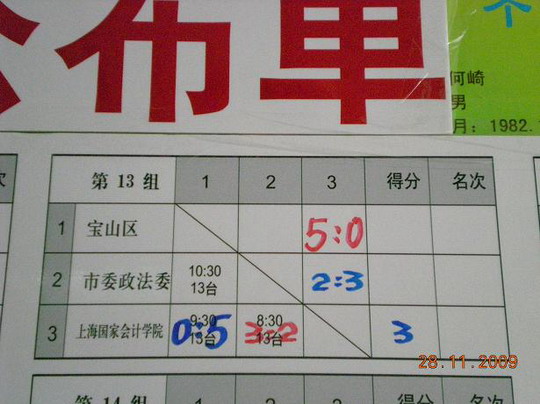 公布单
个
何崎
男
月：1982.
第 13 组 1 2 3 得分 名次
1 宝山区 5:0
2 市委政法委 10:30 13台 2:3
3 上海国家会计学院 9:30 13台 0:5 8:30 13台 3:2 3
第 14 组 1 2 3 得分 名次
28.11.2009